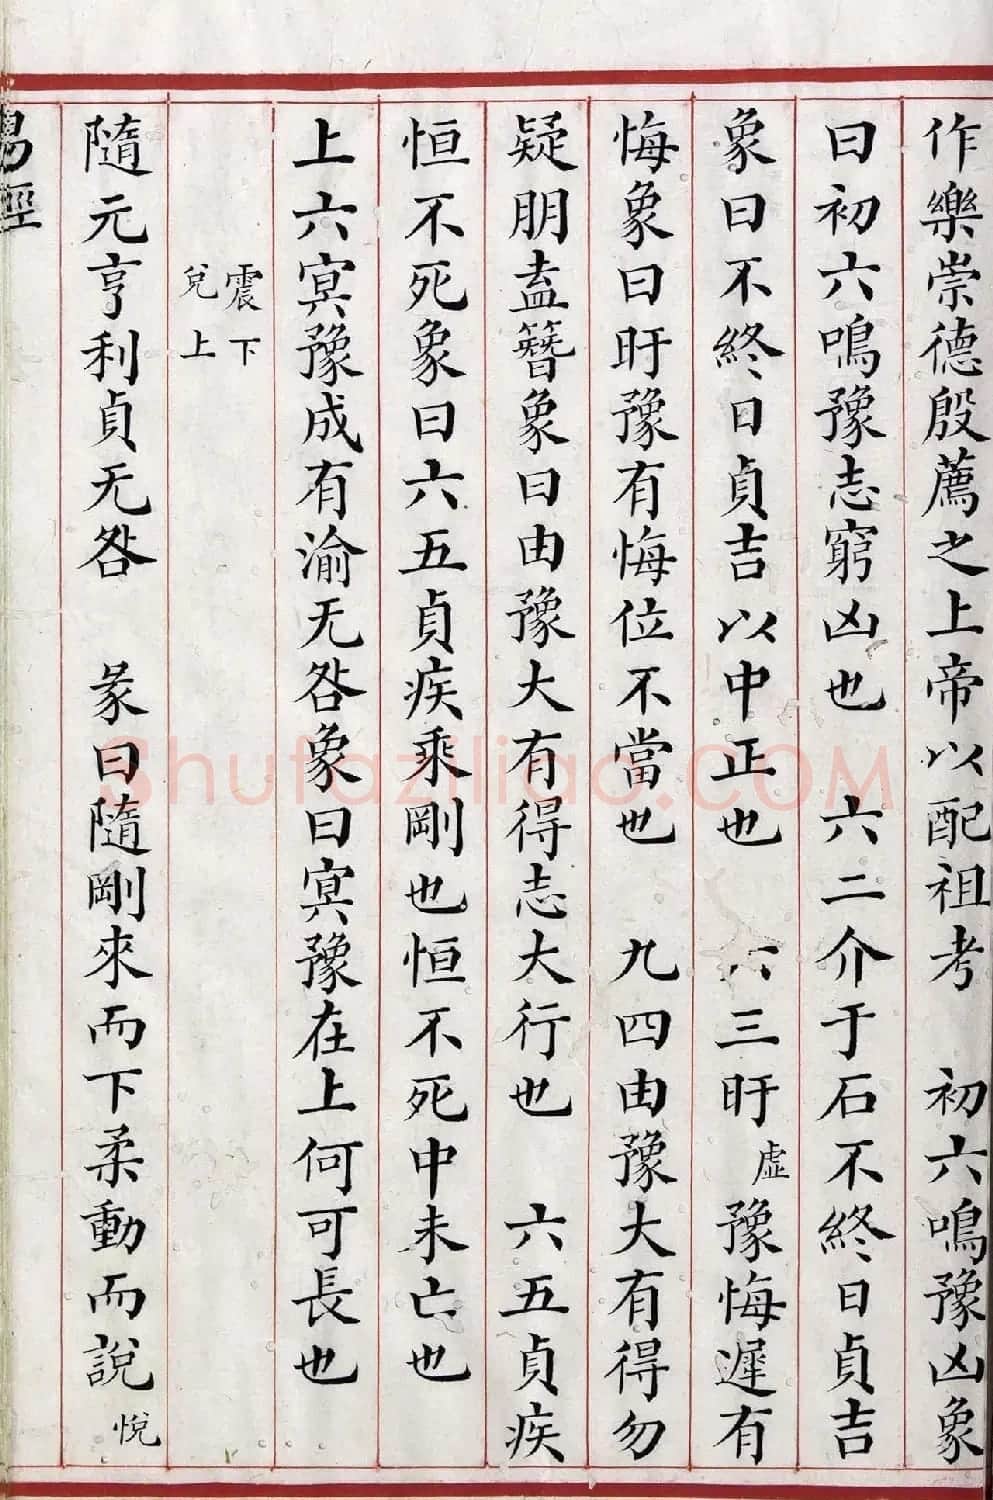 作樂崇德殷薦之上帝以配祖考　初六鳴豫凶象
曰初六鳴豫志窮凶也　六二介于石不終日貞吉
象曰不終日貞吉以中正也　六三盱虛豫悔遲有
悔象曰盱豫有悔位不當也　九四由豫大有得勿
疑朋盍簪象曰由豫大有得志大行也　六五貞疾
恒不死象曰六五貞疾乘剛也恒不死中未亡也
上六冥豫成有渝无咎象曰冥豫在上何可長也
震下
兌上
隨元亨利貞无咎　彖曰隨剛來而下柔動而說悅
易經
Shufaziliao.COM